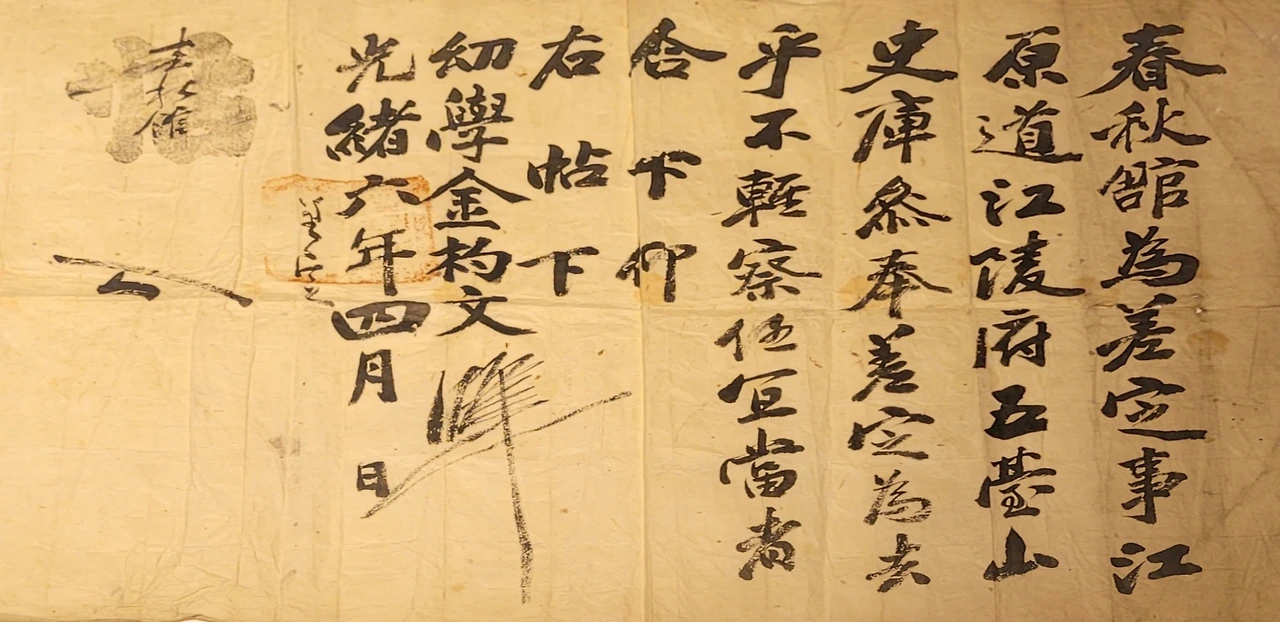 春秋館為差定事江
原道江陵府五臺山
史庫叅奉差定為去
乎不輕察任宜當者
合下仰
右帖下
幼學金杓文
光緒六年四月 日
差定
春秋館